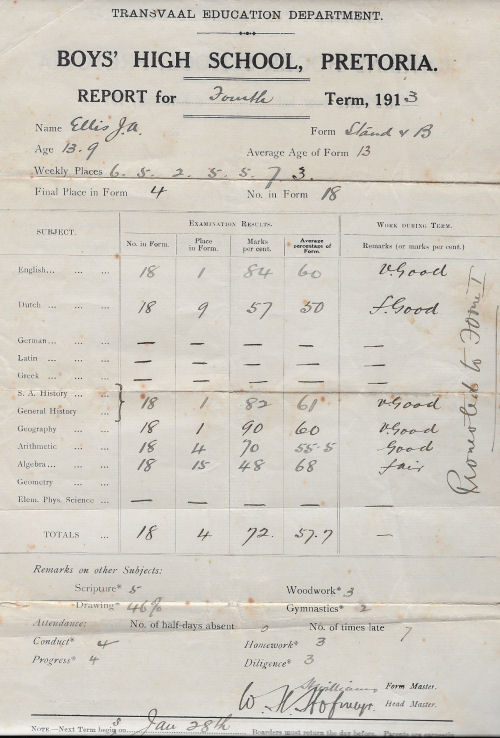 TRANSVAAL EDUCATION DEPARTMENT.
BOYS' HIGH SCHOOL, PRETORIA.
REPORT for Fourth Term, 1913
Name Ellis J.A. Form Stand V B
Age 13.9 Average Age of Form 13
Weekly Places 6. 5. 2. 5. 5. 7 3.
Final Place in Form 4 No. in Form 18
EXAMINATION RESULTS. WORK DURING TERM.
SUBJECT. No. in Form. Place in Form. Marks per cent. Average percentage of Form. Remarks (or marks per cent.)
English... ... ... 18 1 84 60 V.Good
Dutch ... ... ... 18 9 57 50 f.Good
German... ... ... — — — — —
Latin ... ... ... — — — — —
Greek ... ... ... — — — — —
S. A. History ...
General History ... 18 1 82 61 V.Good
Geography ... ... 18 1 90 60 V.Good
Arithmetic ... ... 18 4 70 55.5 Good
Algebra... ... ... 18 15 48 68 fair
Geometry ... ...
Elem. Phys. Science ... — — — — —
TOTALS ... 18 4 72. 57.7 —
Promoted to Form I
Remarks on other Subjects:
Scripture* 5 Woodwork* 3
Drawing* 46% Gymnastics* 2
Attendance: No. of half-days absent No. of times late 7
Conduct* 4 Homework* 3
Progress* 4 Diligence* 3
Williams Form Master.
W. H. Hofmeyr. Head Master.
NOTE.—Next Term begins on Jan 28th Boarders must return the day before.